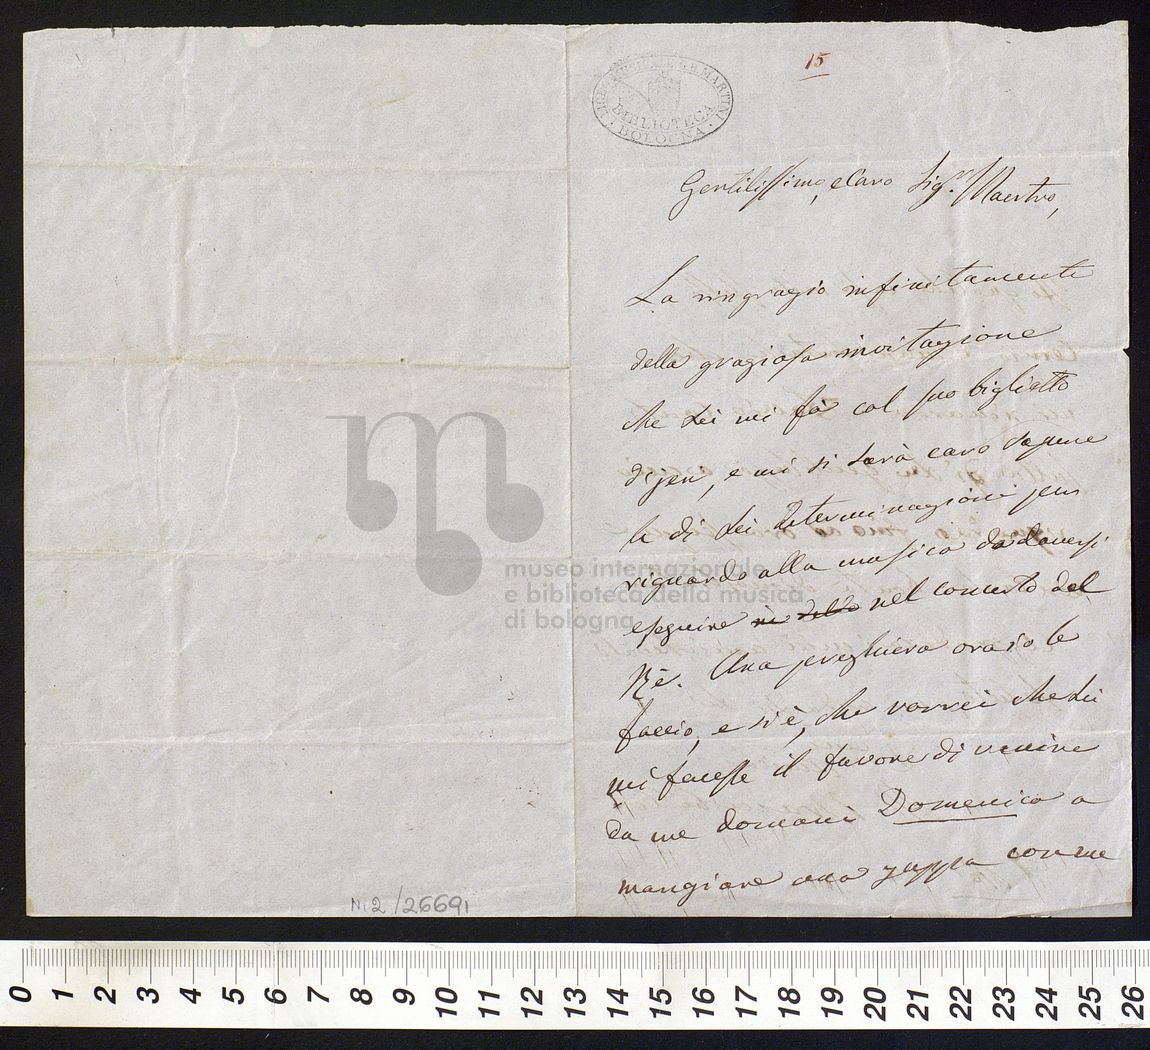 15
LICEO MUSICALE G.B. MARTINI
BIBLIOTECA
BOLOGNA
Gentilissimo, e Caro Sigr. Maestro,
La ringrazio infinitamente
della graziosa invitazione
che Lei mi fà col suo biglietto
di jeri, e mi si sarà caro sapere
le di Lei determinazioni per
riguardo alla musica da doversi
eseguire nel concerto del
Rè. Una preghiera ora io le
faccio, e si è, che vorrei che Lei
mi facesse il favore di venire
da me domani Domenica a
mangiare una zuppa con me
museo internazionale
e biblioteca della musica
di bologna
N. 2/26691
0 1 2 3 4 5 6 7 8 9 10 11 12 13 14 15 16 17 18 19 20 21 22 23 24 25 26